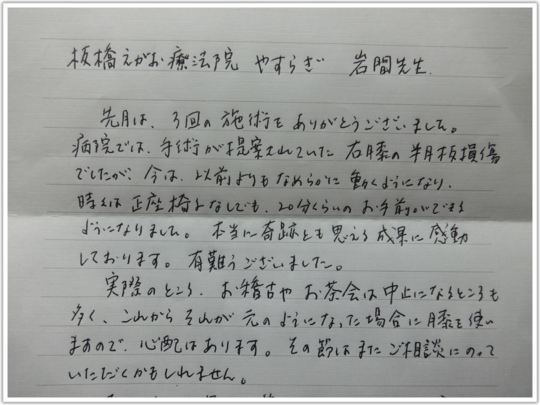 板橋えがお療法院 やすらぎ 岩間先生
先月は、3回の施術をありがとうございました。
病院では、手術が提案されていた右膝の半月板損傷
でしたが、今は、以前よりもなめらかに動くようになり、
時には正座椅子なしでも、20分くらいのお手前ができる
ようになりました。本当に奇跡とも思える成果に感動
しております。有難うございました。
実際のところ、お稽古やお茶会は中止になるところも
多く、これからそれが元のようになった場合に膝を使い
ますので、心配はあります。その節はまたご相談にのって
いただくかもしれません。